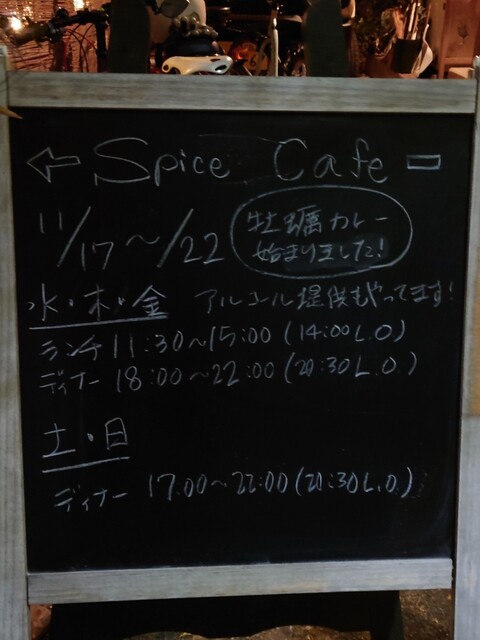 ← Spice Cafe
11/17〜/22
牡蠣カレー
始まりました!
水・木・金 アルコール提供もやってます!
ランチ 11:30〜15:00 (14:00 L.O)
ディナー 18:00〜22:00 (20:30 L.O)
土・日
ディナー 17:00〜22:00 (20:30 L.O.)